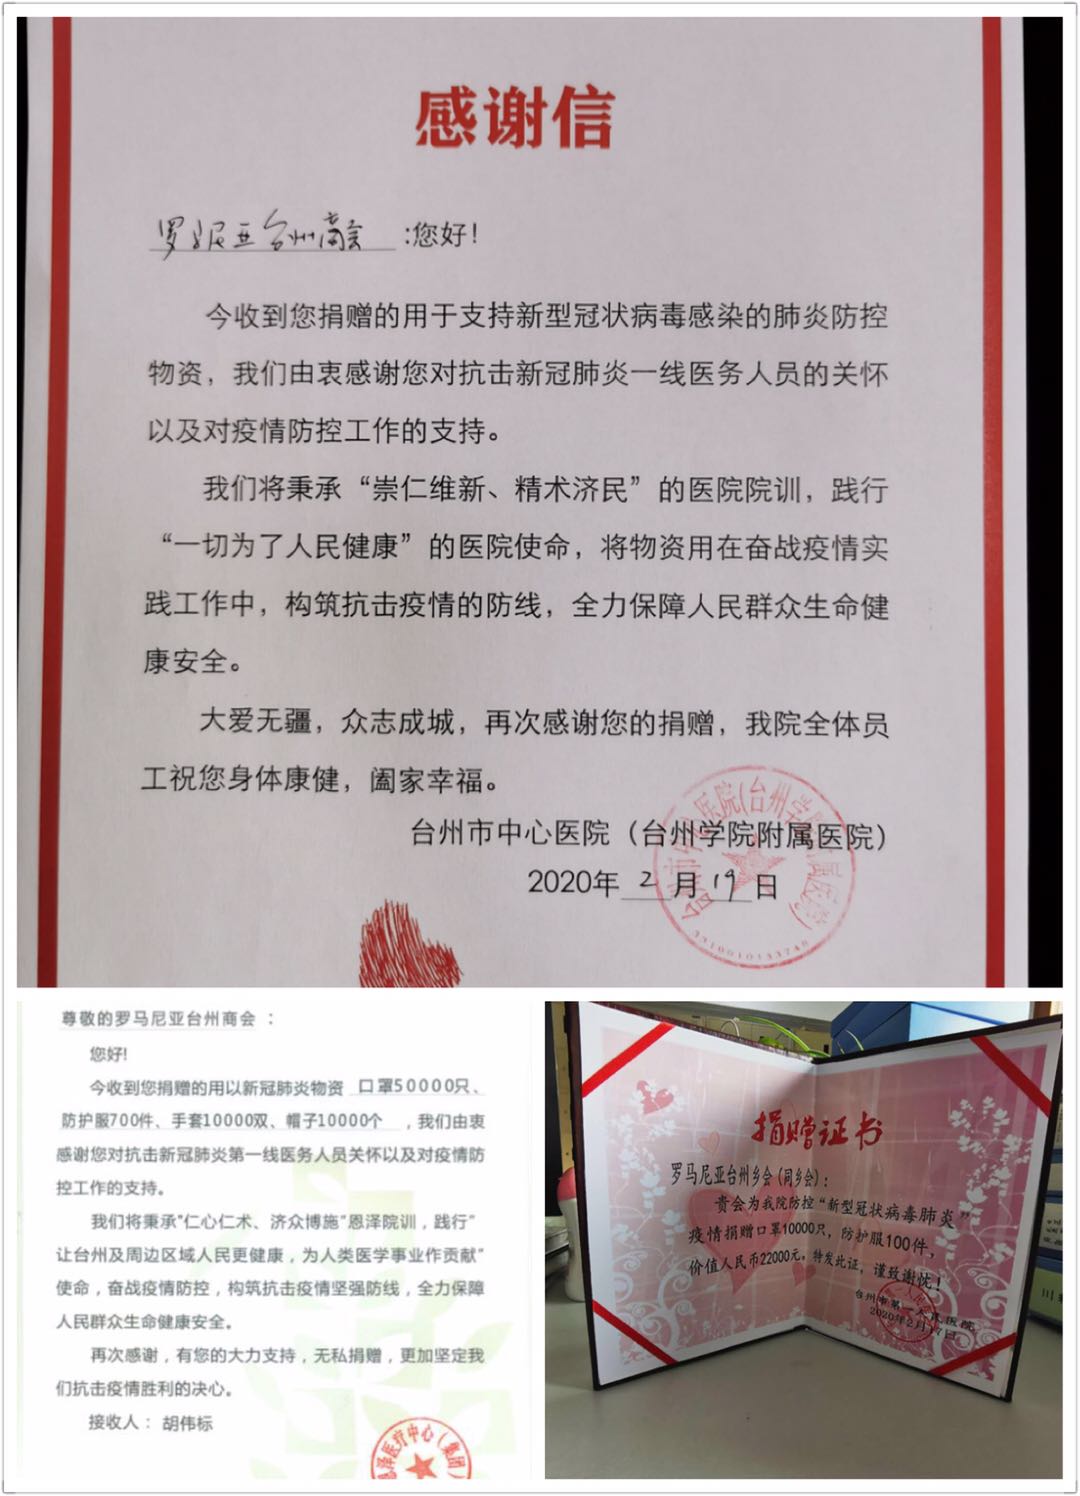 感谢信
罗马尼亚台州商会:您好!
今收到您捐赠的用于支持新型冠状病毒感染的肺炎防控
物资，我们由衷感谢您对抗击新冠肺炎一线医务人员的关怀
以及对疫情防控工作的支持。
我们将秉承“崇仁维新、精术济民”的医院院训，践行
“一切为了人民健康”的医院使命，将物资用在奋战疫情实
践工作中，构筑抗击疫情的防线，全力保障人民群众生命健
康安全。
大爱无疆，众志成城，再次感谢您的捐赠，我院全体员
工祝您身体康健，阖家幸福。
台州市中心医院（台州学院附属医院）
2020年2月19日
尊敬的罗马尼亚台州商会：
您好!
今收到您捐赠的用以新冠肺炎物资 口罩50000只、
防护服700件、手套10000双、帽子10000个，我们由衷
感谢您对抗击新冠肺炎第一线医务人员关怀以及对疫情防
控工作的支持。
我们将秉承“仁心仁术、济众博施”恩泽院训，践行“
让台州及周边区域人民更健康，为人类医学事业作贡献”
使命，奋战疫情防控，构筑抗击疫情坚强防线，全力保障
人民群众生命健康安全。
再次感谢，有您的大力支持，无私捐赠，更加坚定我
们抗击疫情胜利的决心。
接收人：胡伟标
恩泽医疗中心（集团）
捐赠证书
罗马尼亚台州乡会（同乡会）：
贵会为我院防控“新型冠状病毒肺炎”
疫情捐赠口罩10000只，防护服100件，
价值人民币22000元，特发此证，谨致谢忱！
台州市第一人民医院
2020年2月17日